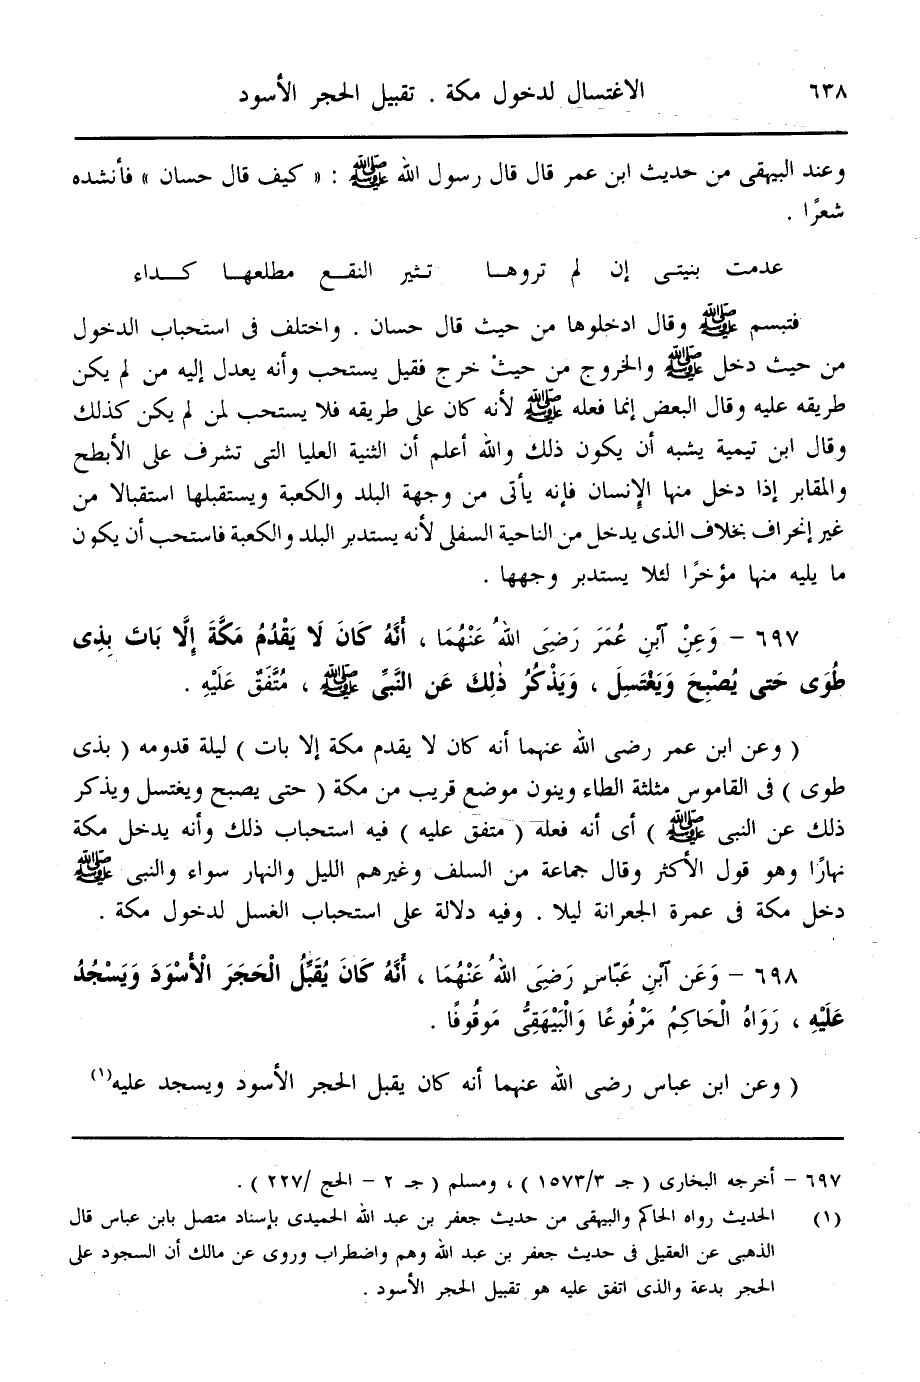 ٦٣٨ الاغتسال لدخول مكة . تقبيل الحجر الأسود
وعند البيهقى من حديث ابن عمر قال قال رسول الله ﷺ : « كيف قال حسان » فأنشده
شعرًا .
عدمت بنيتى إن لم تروها تثير النقع مطلعها كداء
فتبسم ﷺ وقال ادخلوها من حيث قال حسان . واختلف فى استحباب الدخول
من حيث دخل ﷺ والخروج من حيث خرج فقيل يستحب وأنه يعدل إليه من لم يكن
طريقه عليه وقال البعض إنما فعله ﷺ لأنه كان على طريقه فلا يستحب لمن لم يكن كذلك
وقال ابن تيمية يشبه أن يكون ذلك والله أعلم أن الثنية العليا التى تشرف على الأبطح
والمقابر إذا دخل منها الإنسان فإنه يأتى من وجهة البلد والكعبة ويستقبلها استقبالا من
غير إنحراف بخلاف الذى يدخل من الناحية السفلى لأنه يستدبر البلد والكعبة فاستحب أن يكون
ما يليه منها مؤخرًا لئلا يستدبر وجهها .
٦٩٧ - وَعِنْ آبنِ عُمَرَ رَضِىَ اللهُ عَنْهُمَا ، أَنَّهُ كَانَ لَا يَقْدُمُ مَكَّةَ إِلَّا بَاتَ بِذِى
طُوَى حَتى يُصْبِحَ وَيَغْتَسِلَ ، وَيَذْكُرُ ذٰلِكَ عَن النَّبِىِّ ﷺ ، مُتَّفَقٌ عَلَيْهِ .
( وعن ابن عمر رضى الله عنهما أنه كان لا يقدم مكة إلا بات ) ليلة قدومه ( بذى
طوى ) فى القاموس مثلثة الطاء وينون موضع قريب من مكة ( حتى يصبح ويغتسل ويذكر
ذلك عن النبى ﷺ ) أى أنه فعله ( متفق عليه ) فيه استحباب ذلك وأنه يدخل مكة
نهارًا وهو قول الأكثر وقال جماعة من السلف وغيرهم الليل والنهار سواء والنبى ﷺ
دخل مكة فى عمرة الجعرانة ليلا . وفيه دلالة على استحباب الغسل لدخول مكة .
٦٩٨ - وَعَن آبنِ عَبّاسٍ رَضِىَ اللهُ عَنْهُمَا ، أَنَّهُ كَانَ يُقَبِّلُ الْحَجَرَ الْأَسْوَدَ وَيَسْجُدُ
عَلَيْهِ ، رَوَاهُ الْحَاكِمُ مَرْفُوعًا وَالْبَيْهَقِىُّ مَوْقُوفًا .
( وعن ابن عباس رضى الله عنهما أنه كان يقبل الحجر الأسود ويسجد عليه(١)
٦٩٧ - أخرجه البخارى ( جـ ١٥٧٣/٣ ) ، ومسلم ( جـ ٢ - الحج /٢٢٧ ) .
(١) الحديث رواه الحاكم والبيهقى من حديث جعفر بن عبد الله الحميدى بإسناد متصل بابن عباس قال
الذهبى عن العقيلى فى حديث جعفر بن عبد الله وهم واضطراب وروى عن مالك أن السجود على
الحجر بدعة والذى اتفق عليه هو تقبيل الحجر الأسود .